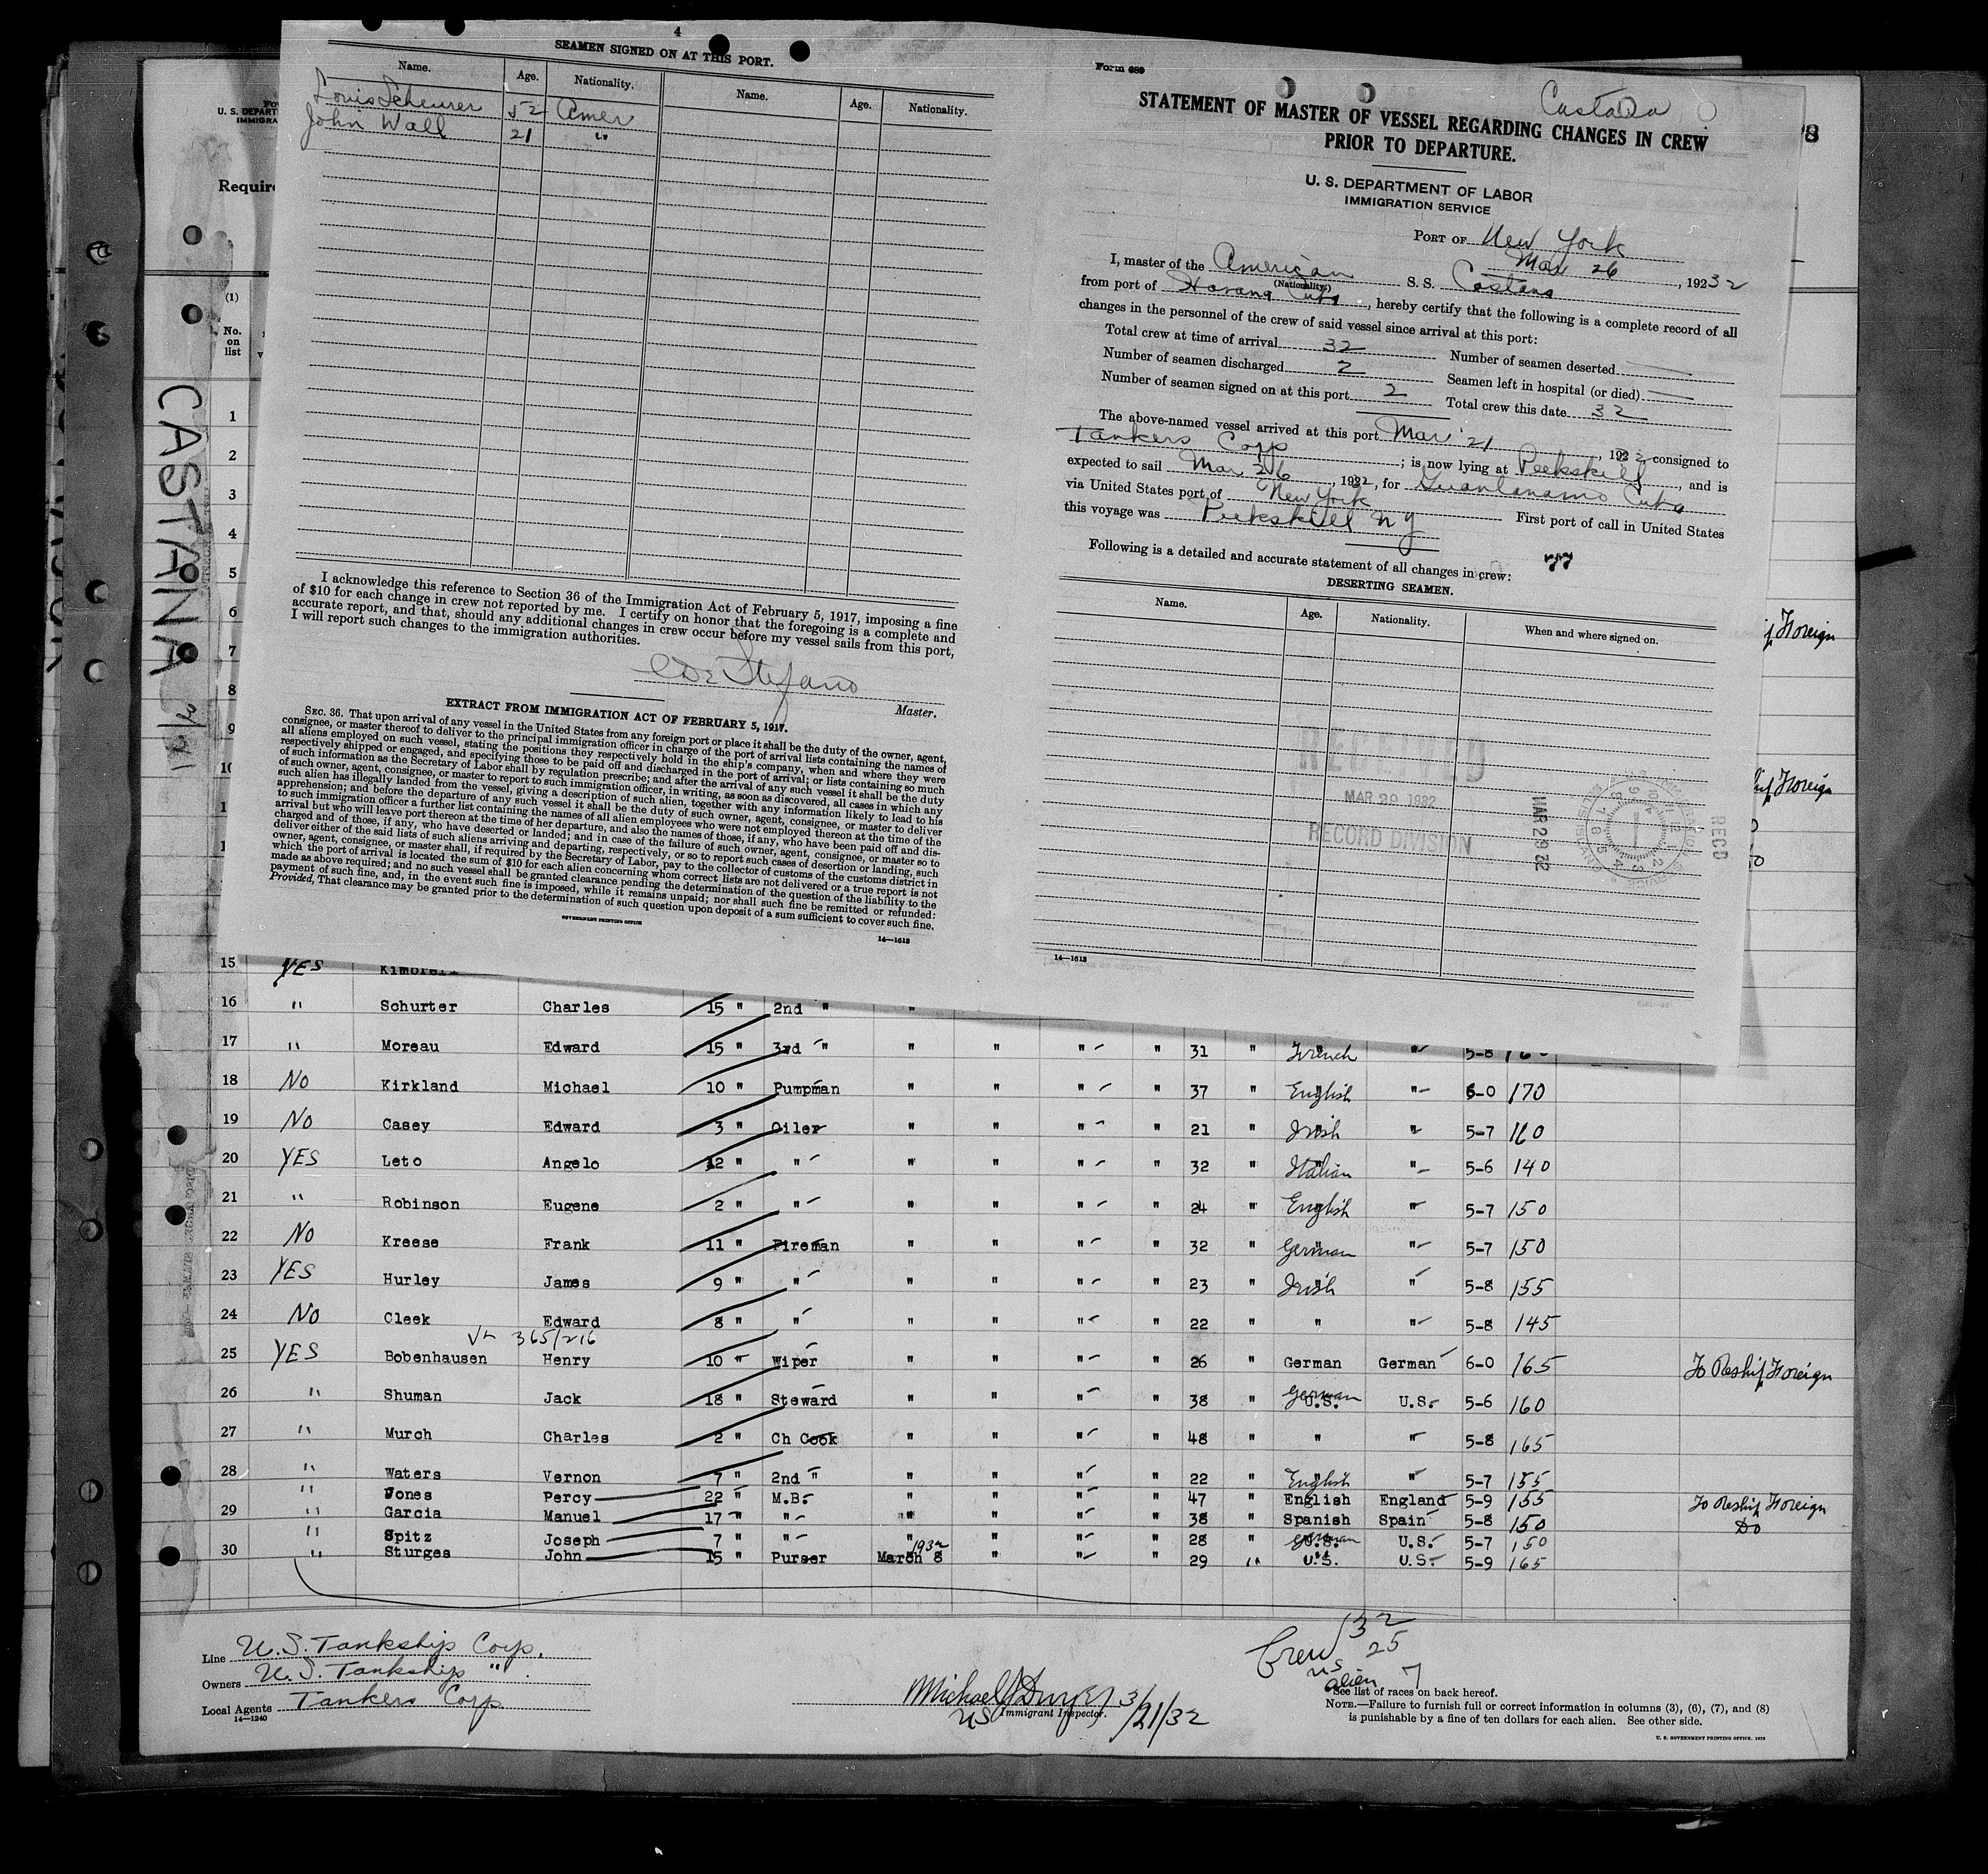 4
SEAMEN SIGNED ON AT THIS PORT.
Name. Age. Nationality. Name. Age. Nationality.
Louis Scheurer 52 Amer
John Wall 21 "
I acknowledge this reference to Section 36 of the Immigration Act of February 5, 1917, imposing a fine
of $10 for each change in crew not reported by me. I certify on honor that the foregoing is a complete and
accurate report, and that, should any additional changes in crew occur before my vessel sails from this port,
I will report such changes to the immigration authorities.
C De Stefano
Master.
EXTRACT FROM IMMIGRATION ACT OF FEBRUARY 5, 1917.
SEC. 36. That upon arrival of any vessel in the United States from any foreign port or place it shall be the duty of the owner, agent,
consignee, or master thereof to deliver to the principal immigration officer in charge of the port of arrival lists containing the names of
all aliens employed on such vessel, stating the positions they respectively hold in the ship's company, when and where they were
respectively shipped or engaged, and specifying those to be paid off and discharged in the port of arrival; or lists containing so much
of such information as the Secretary of Labor shall by regulation prescribe; and after the arrival of any such vessel it shall be the duty
of such owner, agent, consignee, or master to report to such immigration officer, in writing, as soon as discovered, all cases in which any
such alien has illegally landed from the vessel, giving a description of such alien, together with any information likely to lead to his
apprehension; and before the departure of any such vessel it shall be the duty of such owner, agent, consignee, or master to deliver
to such immigration officer a further list containing the names of all alien employees who were not employed thereon at the time of the
arrival but who will leave port thereon at the time of her departure, and also the names of those, if any, who have been paid off and dis-
charged and of those, if any, who have deserted or landed; and in case of the failure of such owner, agent, consignee, or master so to
deliver either of the said lists of such aliens arriving and departing, respectively, or so to report such cases of desertion or landing, such
owner, agent, consignee, or master shall, if required by the Secretary of Labor, pay to the collector of customs of the customs district in
which the port of arrival is located the sum of $10 for each alien concerning whom correct lists are not delivered or a true report is not
made as above required; and no such vessel shall be granted clearance pending the determination of the question of the liability to the
payment of such fine, and, in the event such fine is imposed, while it remains unpaid; nor shall such fine be remitted or refunded:
Provided, That clearance may be granted prior to the determination of such question upon deposit of a sum sufficient to cover such fine.
GOVERNMENT PRINTING OFFICE
14—1613
Form 689
Castana
STATEMENT OF MASTER OF VESSEL REGARDING CHANGES IN CREW
PRIOR TO DEPARTURE.
U. S. DEPARTMENT OF LABOR
IMMIGRATION SERVICE
PORT OF New York
Mar 26, 1932
I, master of the American S. S. Castana
(Nationality.)
from port of Havana Cuba, hereby certify that the following is a complete record of all
changes in the personnel of the crew of said vessel since arrival at this port:
Total crew at time of arrival 32 Number of seamen deserted —
Number of seamen discharged 2 Seamen left in hospital (or died) —
Number of seamen signed on at this port 2 Total crew this date 32
The above-named vessel arrived at this port Mar 21, 1932 consigned to
Tankers Corp; is now lying at Peekskill, and is
expected to sail Mar 26, 1932, for Guantanamo Cuba
via United States port of New York First port of call in United States
this voyage was Peekskill N Y
Following is a detailed and accurate statement of all changes in crew: 77
DESERTING SEAMEN.
Name. Age. Nationality. When and where signed on.
RECEIVED
MAR 29 1932
RECORD DIVISION
MAR 29 1932
RECD
14—1613
U. S. DEPART
IMMIGRA
Require
(1)
No. on list
CASTANA 3/21
1
2
3
4
5
6
7
8
9
10
f Foreign
hip Foreign
15 YES Kimbrell
16 " Schurter Charles 15 " 2nd " "
17 " Moreau Edward 15 " 3rd " " " " " 31 " French " 5-8 160
18 No Kirkland Michael 10 " Pumpman " " " " 37 " English " 6-0 170
19 No Casey Edward 3 " Oiler " " " " 21 " Irish " 5-7 160
20 YES Leto Angelo 12 " " " " " " 32 " Italian " 5-6 140
21 " Robinson Eugene 2 " " " " " " 24 " English " 5-7 150
22 No Kreese Frank 11 " Fireman " " " " 32 " German " 5-7 150
23 YES Hurley James 9 " " " " " " 23 " Irish " 5-8 155
24 No Cleek Edward 8 " " " " " " 22 " " " 5-8 145
365/216
25 YES Bobenhausen Henry 10 " Wiper " " " " 26 " German German 6-0 165 To Reship Foreign
26 " Shuman Jack 18 " Steward " " " " 38 " German U.S. U.S. 5-6 160
27 " Murch Charles 2 " Ch Cook " " " " 48 " " " 5-8 165
28 " Waters Vernon 7 " 2nd " " " " " 22 " English " 5-7 155
" Jones Percy 22 " M.B. " " " " 47 " English England 5-9 155 To Reship Foreign
29 " Garcia Manuel 17 " " " " " " 38 " Spanish Spain 5-8 150 Do
" Spitz Joseph 7 " " " " " " 28 " German U.S. U.S. 5-7 150
30 " Sturges John 15 " Purser March 8 1932 " " " 29 " U.S. U.S. 5-9 165
Line U.S. Tankship Corp.
Owners U.S. Tankship " .
Local Agents Tankers Corp
14—1240
Michael J Dwyer 3/21/32
US Immigrant Inspector.
Crew 32
US 25
alien 7
See list of races on back hereof.
NOTE.—Failure to furnish full or correct information in columns (3), (6), (7), and (8)
is punishable by a fine of ten dollars for each alien. See other side.
U. S. GOVERNMENT PRINTING OFFICE: 1929